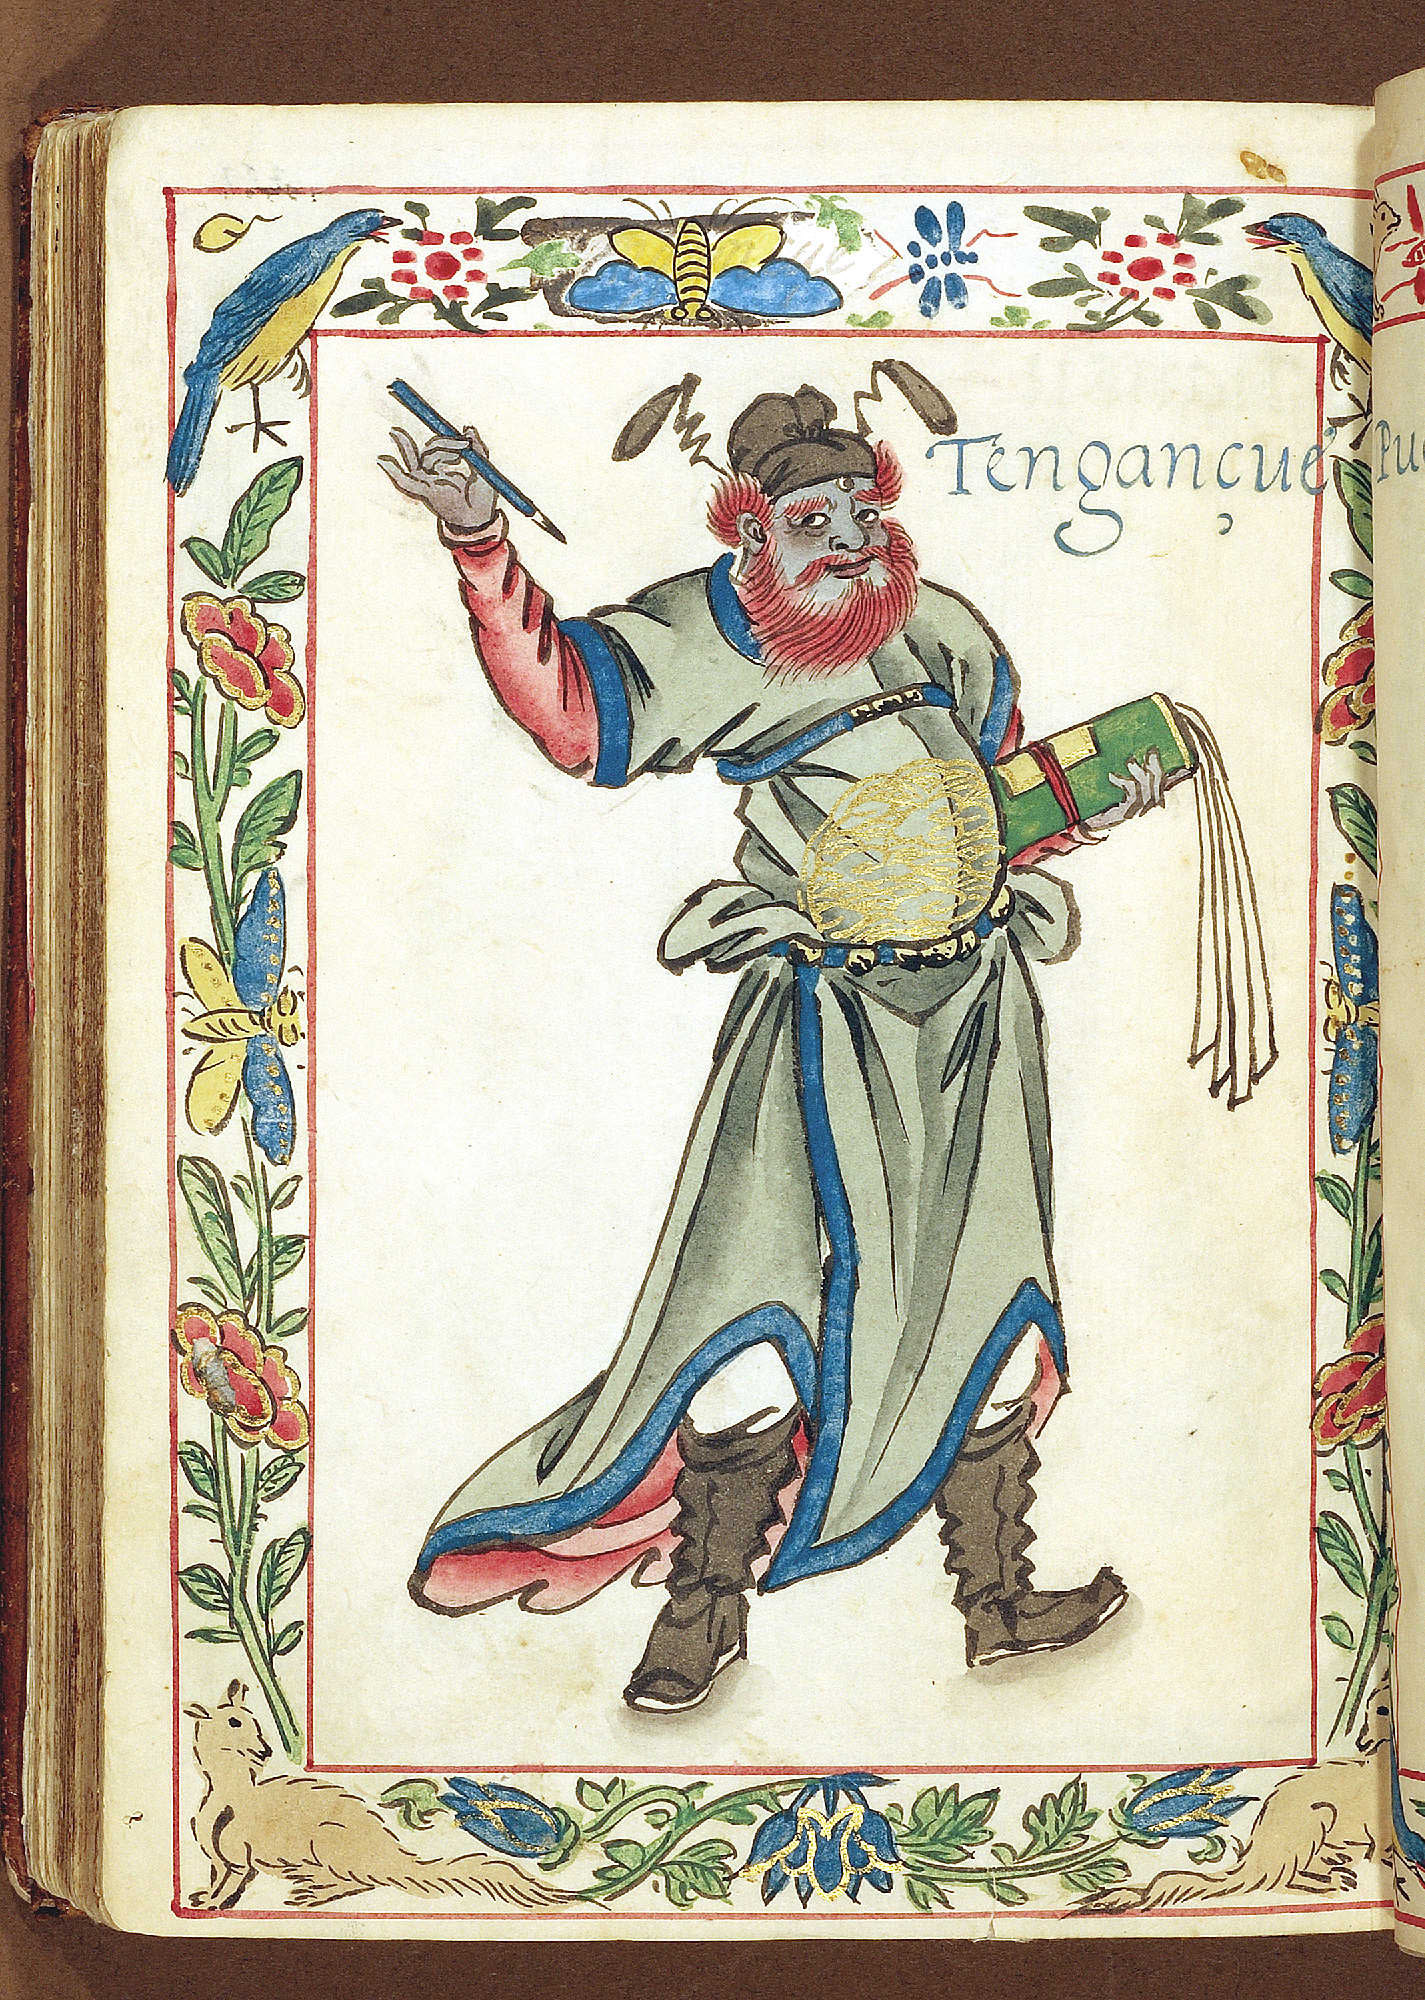 Tengançué Pu